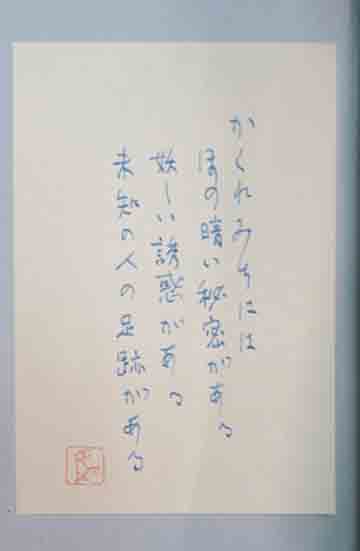 かくれみちには
ほの暗い秘密がある
妖しい誘惑がある
未知の人の足跡がある